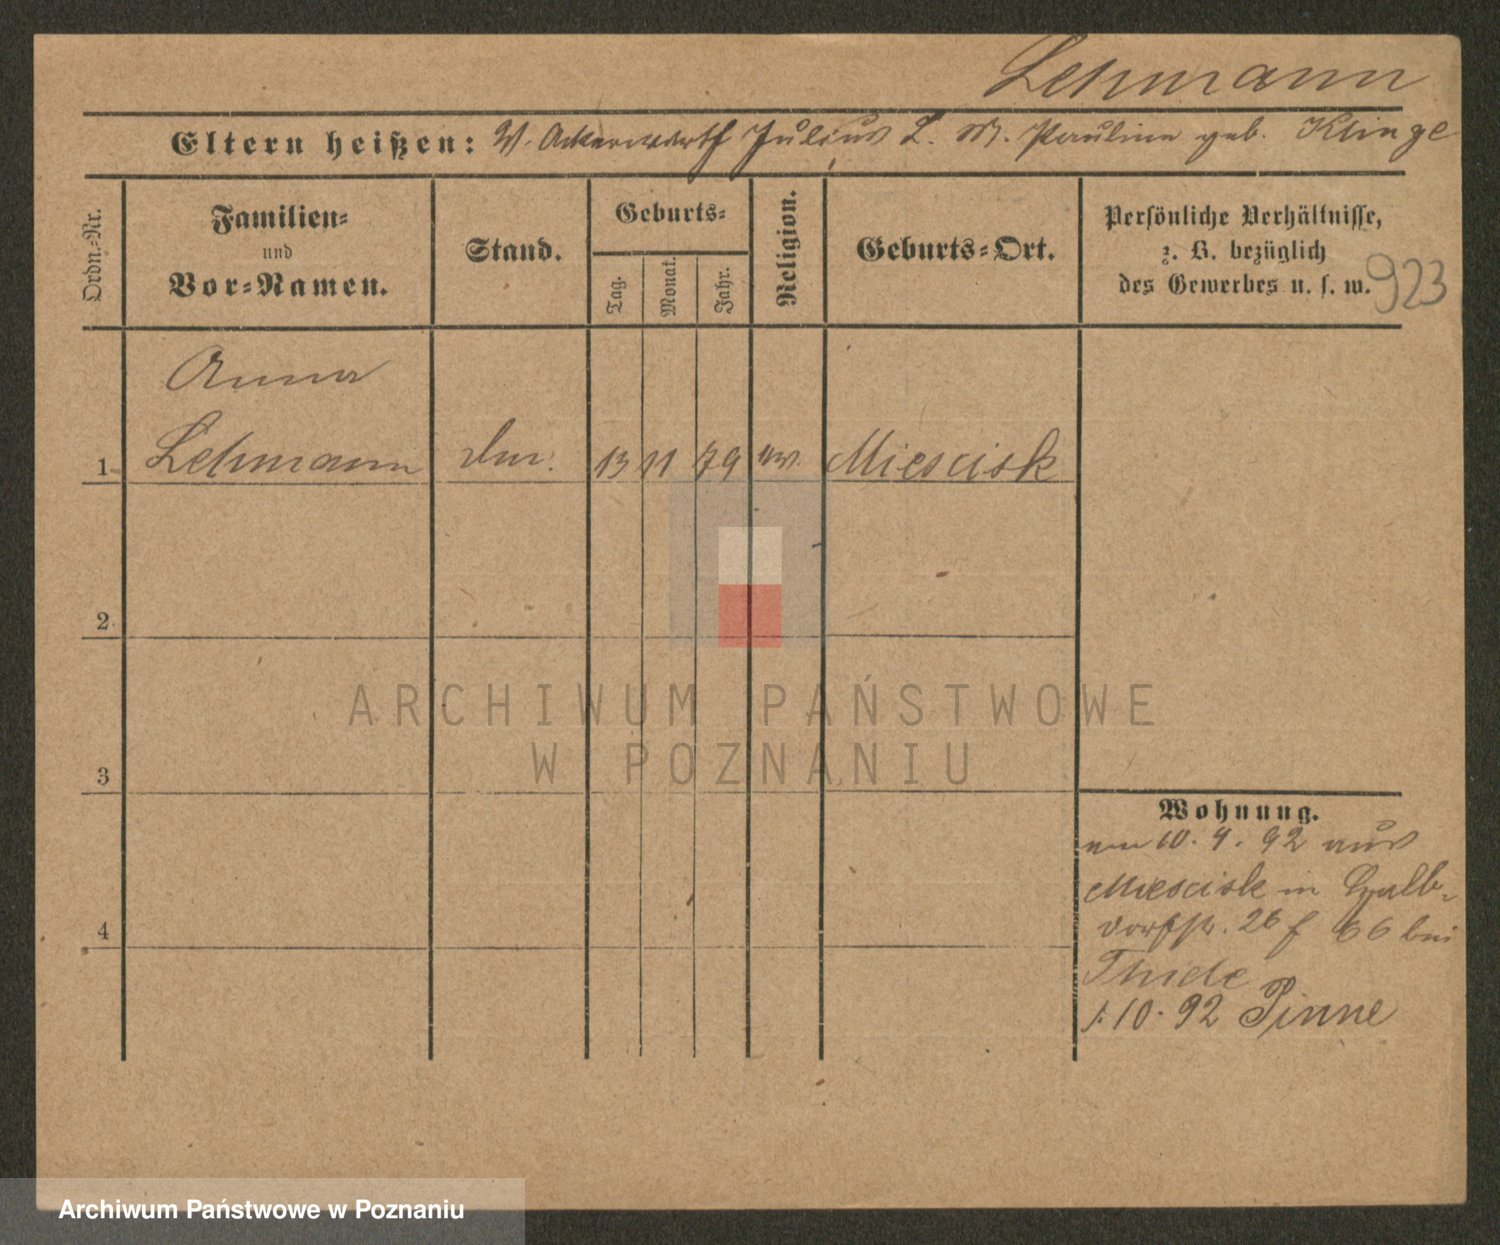 Lehmann
Eltern heißen: V. Ackerwirth Julius L. M. Pauline geb. Klinge
Ordn.-Nr.
Familien-
und
Vor-Namen.
Stand.
Geburts-
Tag.
Monat.
Jahr.
Religion.
Geburts-Ort.
Persönliche Verhältnisse,
z. B. bezüglich
des Gewerbes u. s. w.
923
Anna
1 Lehmann 13 11 79 ev. Miescisk
2
3
4
Wohnung.
am 10. 4. 92 aus
Miescisk in Halb-
dorfstr. 26 f 66 bei
Thiele
1.10.92 Pinne
ARCHIWUM PAŃSTWOWE
W POZNANIU
Archiwum Państwowe w Poznaniu